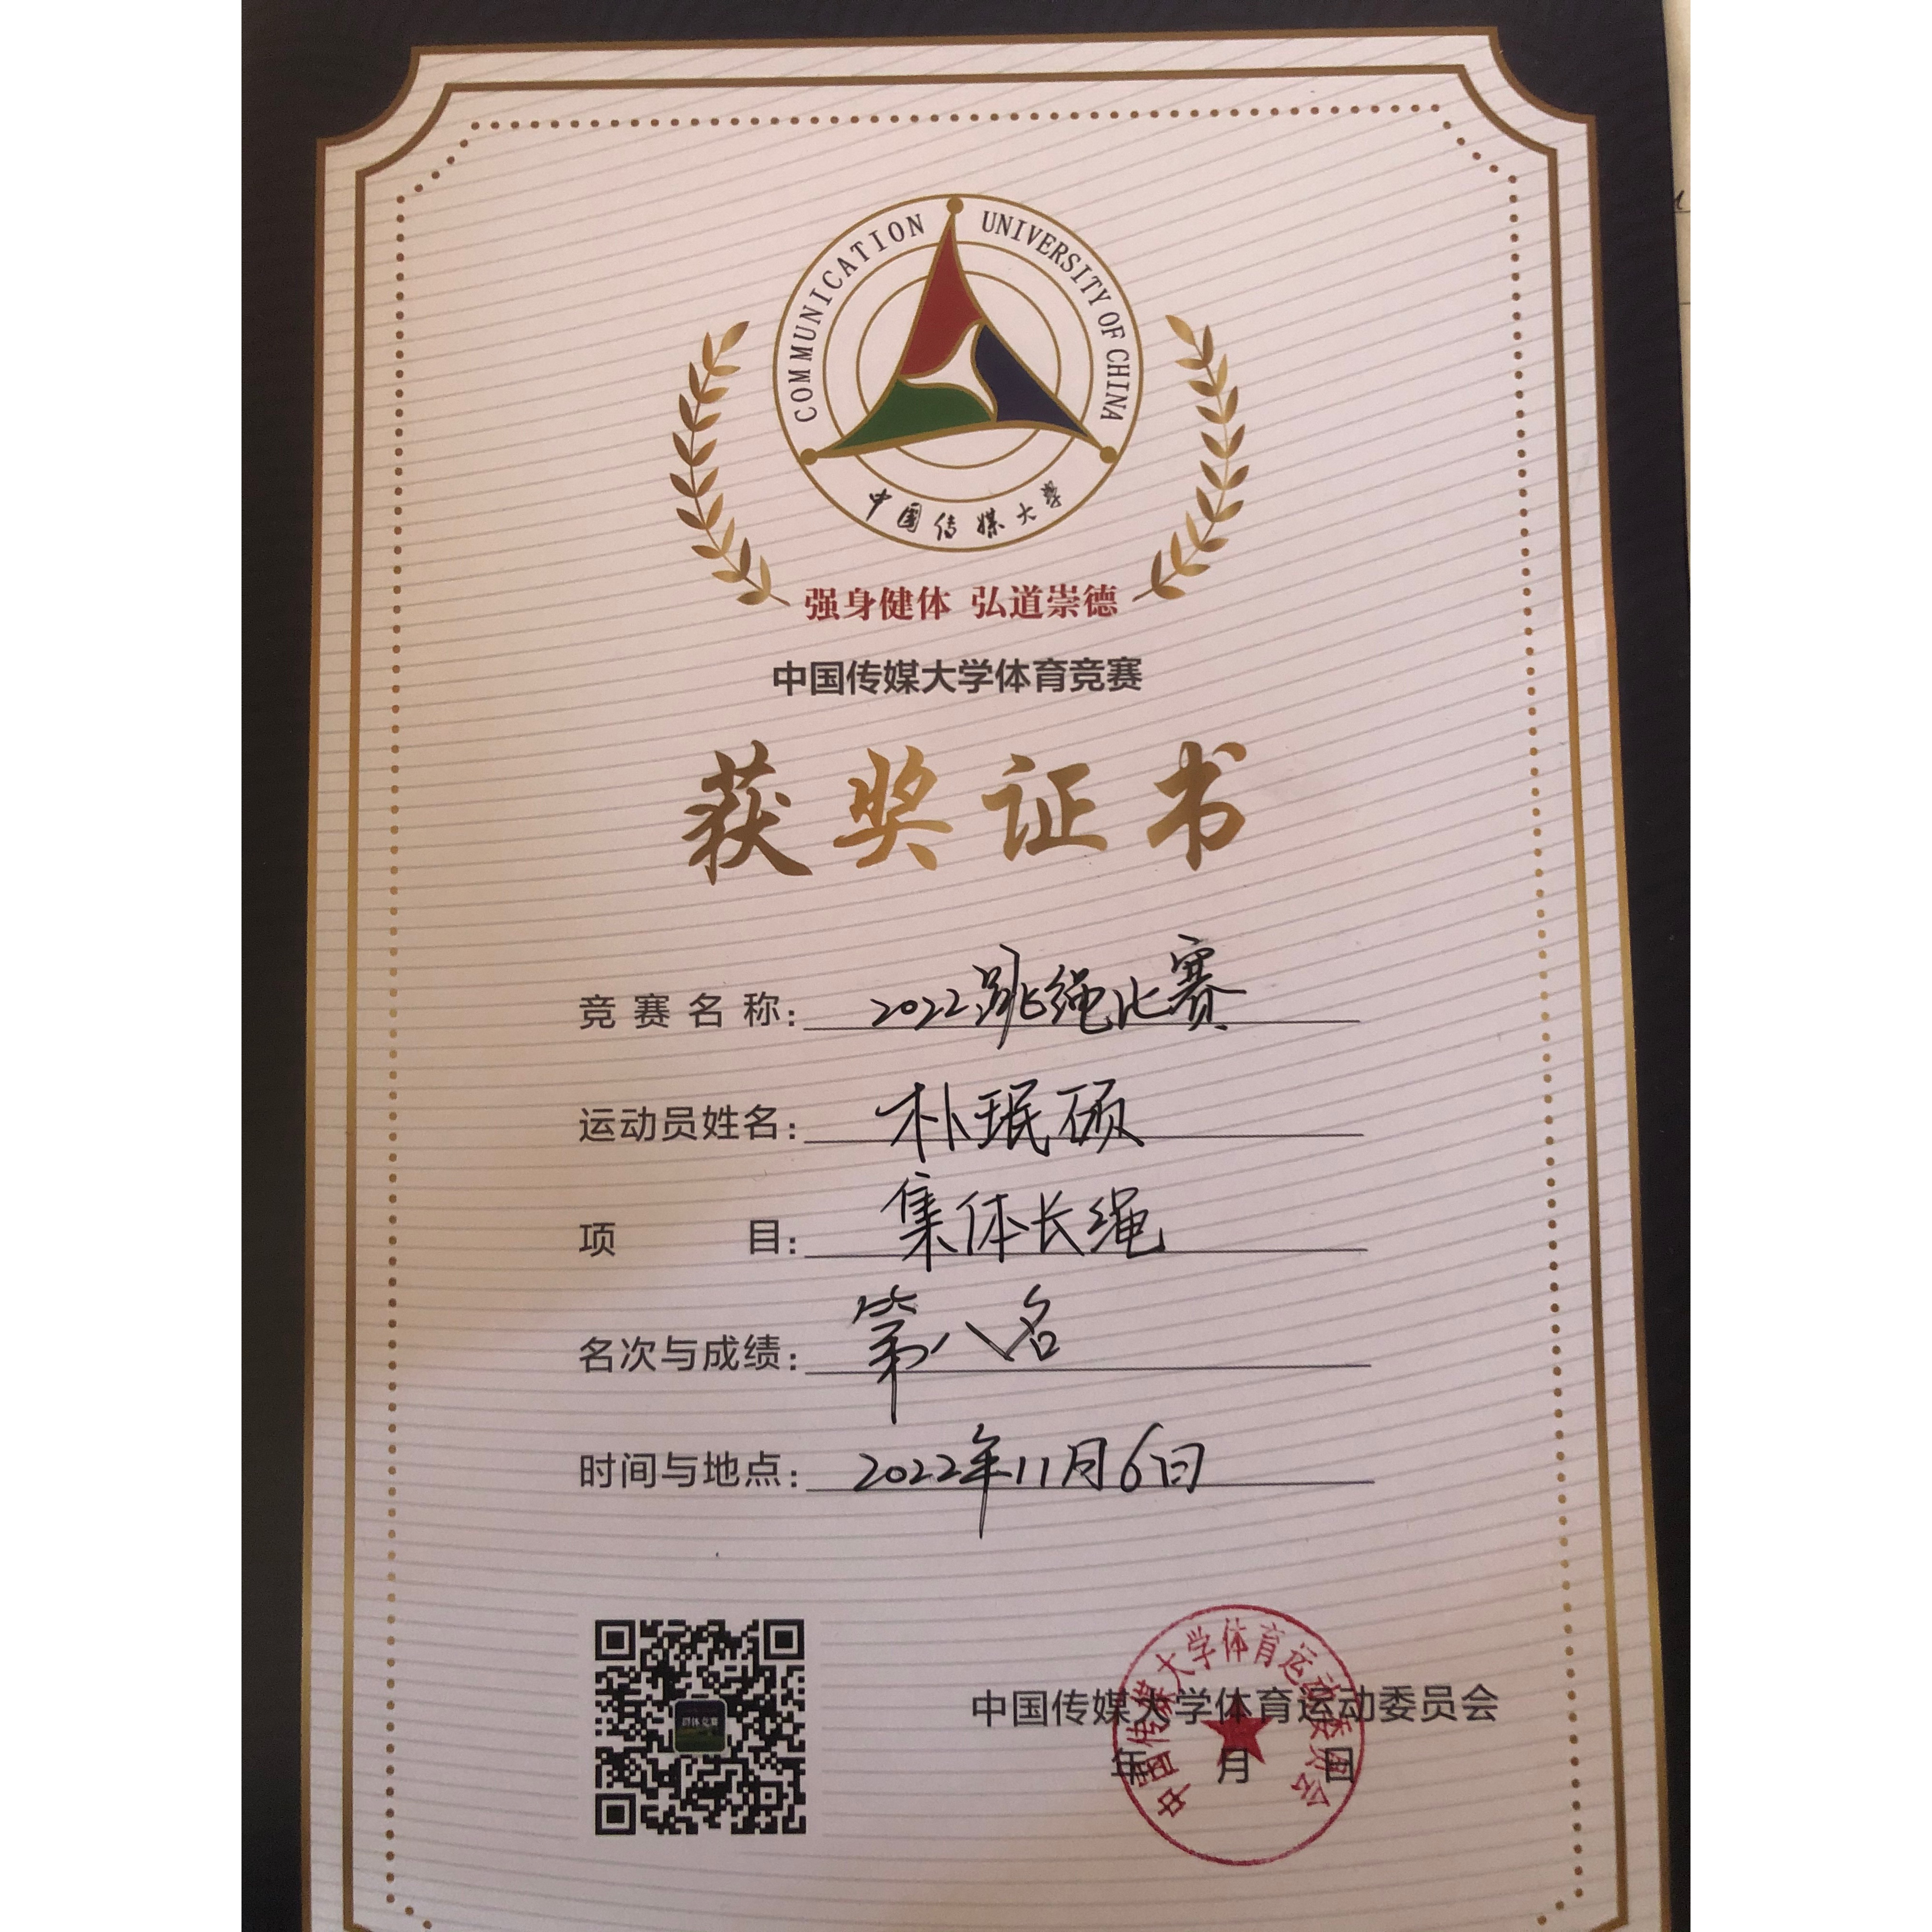 COMMUNICATION UNIVERSITY OF CHINA
中国传媒大学
强身健体 弘道崇德
中国传媒大学体育竞赛
获奖证书
竞赛名称：2022跳绳比赛
运动员姓名：朴珉硕
项目：集体长绳
名次与成绩：第八名
时间与地点：2022年11月6日
群体竞赛
中国传媒大学体育运动委员会
年 月 日
中国传媒大学体育运动委员会